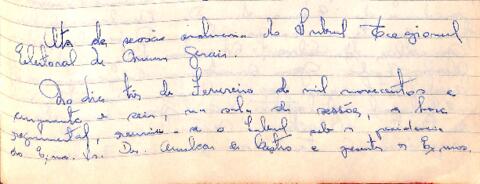 Ata da sessão ordinária do Tribunal Regional
Eleitoral de Minas Gerais.
Ao dia três de Fevereiro de mil novecentos e
cinquenta e seis, na sala de sessões, a hora
regimental, reuniu-se o Tribunal sob a presidencia
do Exmo. Sr. Des. Amilcar de Castro e presentes os Exmos.